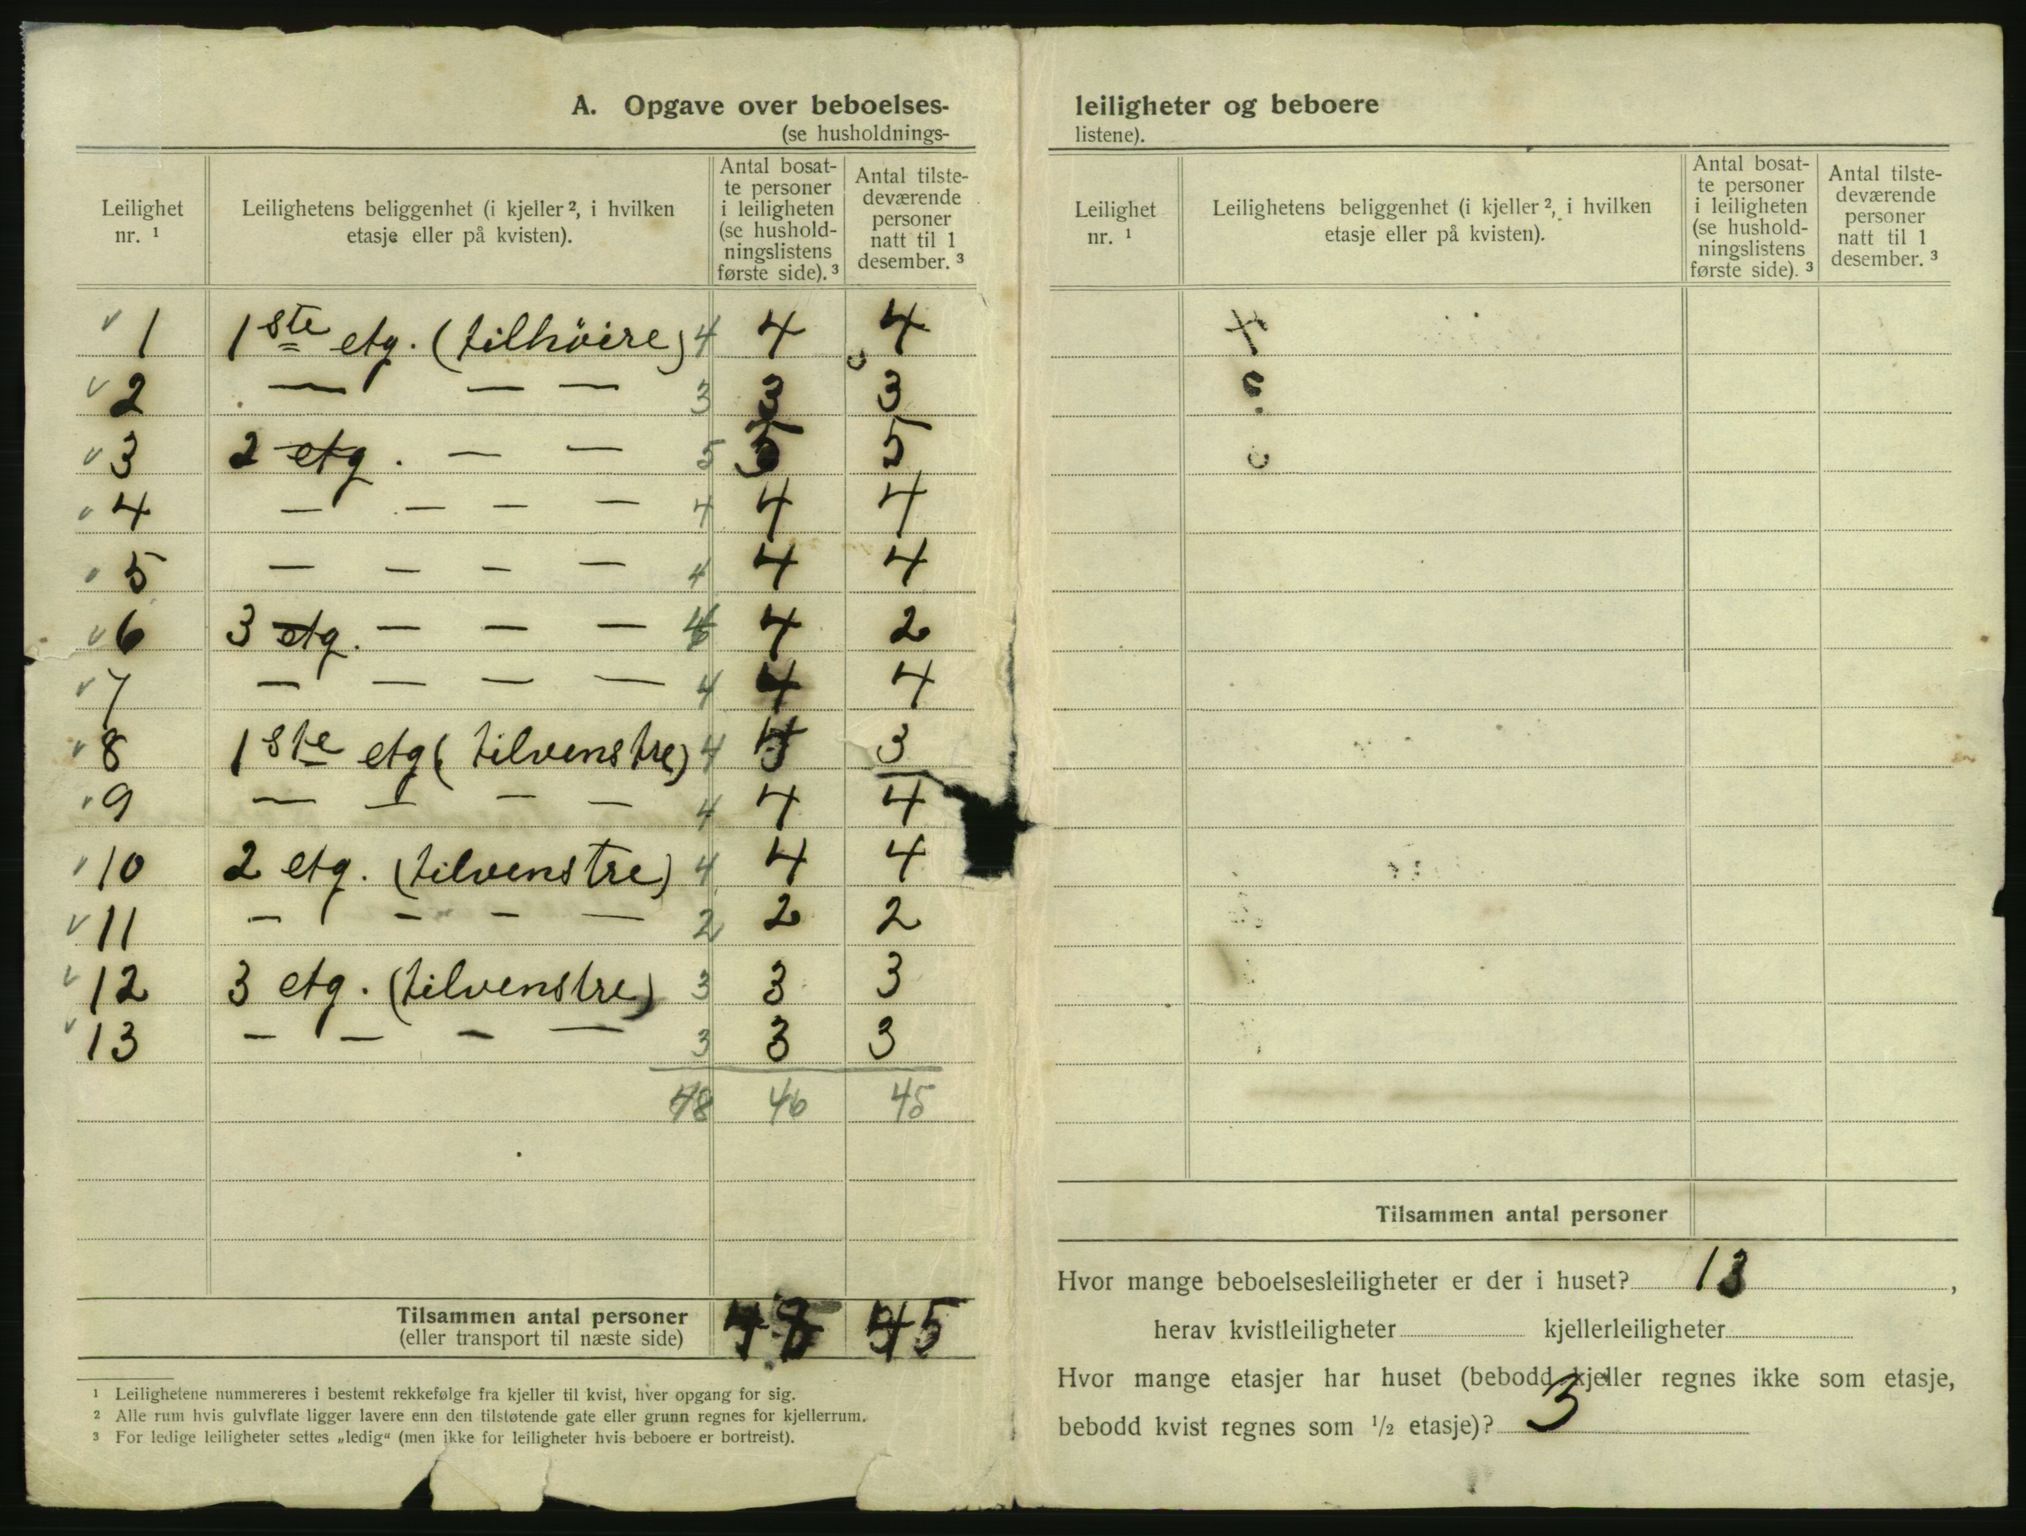 A. Opgave over beboelses-
(se husholdnings-
Leilighet nr. ¹
Leilighetens beliggenhet (i kjeller ², i hvilken etasje eller på kvisten).
Antal bosat-
te personer
i leiligheten
(se hushold-
ningslistens
første side). ³
Antal tilste-
deværende
personer
natt til 1
desember. ³
1 1ste etg. (tilhöire) 4 4 4
2 — — — 3 3 3
3 2 etg. — — 5 5 5
4 — — — — 4 4 4
5 — — — — 4 4 4
6 3 etg. — — — 4 2
7 — — — — 4 4 4
8 1ste etg (tilvenstre) 4 3
9 — — — — 4 4 4
10 2 etg. (tilvenstre) 4 4 4
11 — — — — 2 2 2
12 3 etg. (tilvenstre) 3 3 3
13 — — — — 3 3 3
48 46 45
Tilsammen antal personer 48 45
(eller transport til næste side)
¹ Leilighetene nummereres i bestemt rekkefølge fra kjeller til kvist, hver opgang for sig.
² Alle rum hvis gulvflate ligger lavere enn den tilstøtende gate eller grunn regnes for kjellerrum.
³ For ledige leiligheter settes „ledig“ (men ikke for leiligheter hvis beboere er bortreist).
leiligheter og beboere
listene).
Leilighet nr. ¹
Leilighetens beliggenhet (i kjeller ², i hvilken etasje eller på kvisten).
Antal bosat-
te personer
i leiligheten
(se hushold-
ningslistens
første side). ³
Antal tilste-
deværende
personer
natt til 1
desember. ³
Tilsammen antal personer
Hvor mange beboelsesleiligheter er der i huset? 13,
herav kvistleiligheter kjellerleiligheter
Hvor mange etasjer har huset (bebodd kjeller regnes ikke som etasje,
bebodd kvist regnes som ½ etasje)? 3